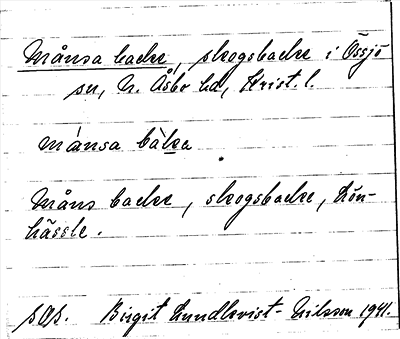 Månsa backe, skogsbacke i Össjö
sn, N. Åsbo hd, Krist. l.
månsa bàka
Måns backe, skogsbacke, Lön-
hässle.
Birgit Lundkvist-Nilsson 1941.